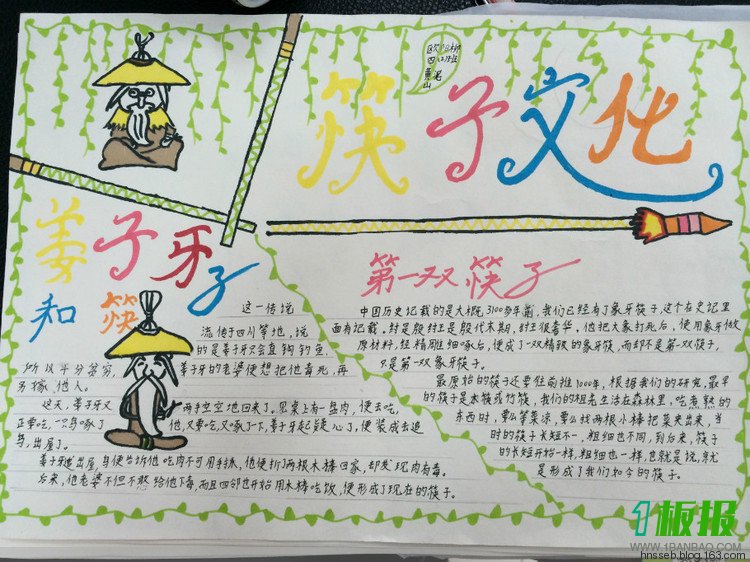 筷子文化
姜子牙
和筷子
这一传说
流传于四川等地,说
的是姜子牙只会直钩钓鱼,
所以十分穷穷,
姜子牙的老婆便想把他毒死,再
另嫁他人。
这天,姜子牙又
两手空空地回来了。见桌上有一盘肉,便去吃,
正要吃,一只鸟啄了
他,又要吃,又啄了一下,姜子牙起疑心了,便装成去追
鸟,出屋了。
姜子牙追出屋,鸟便告诉他吃肉不可用手抓,他便折了两根木棒回家,却发现肉有毒。
后来,他老婆不但不敢给他下毒,而且四邻也开始用木棒吃饭,便形成了现在的筷子。
第一双筷子
中国历史记载的是大概,3100多年前,我们已经有了象牙筷子,这个在史记里
面有记载。纣是殷纣王是殷代末期,纣王很奢华,他把大象打死后,使用象牙做
原材料,经精雕细啄后,便成了一双精致的象牙筷,而却不是第一双筷子,
只是第一双象牙筷子。
最原始的筷子还要往前推1000年,根据我们的研究,最早
的筷子是木筷或竹筷,我们的祖老生活在森林里,吃煮熟的
东西时,要么等菜凉,要么找两根小棒把菜夹出来,当
时的筷子长短不一,粗细也不同,到后来,筷子
的长短开始一样,粗细也一样,也就是说,就
是形成了我们如今的筷子。
1板报
WWW.1BANBAO.COM
hnsseb.blog.163.com